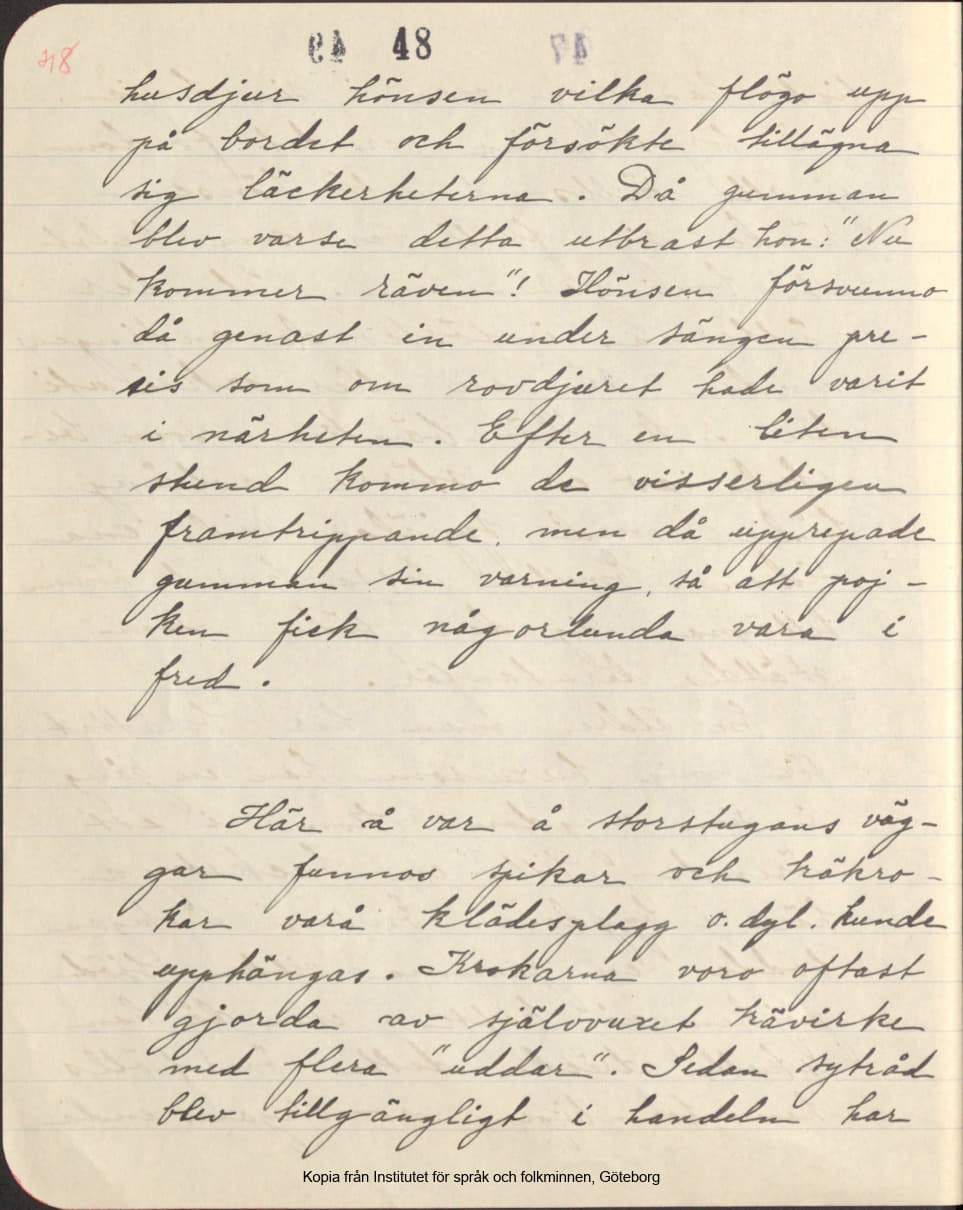 48
48
husdjur hönsen vilka flögo upp
på bordet och försökte tillägna
sig läckerheterna. Då gumman
blev varse detta utbrast hon: "Nu
kommer räven"! Hönsen försvunno
då genast in under sängen pre-
sis som om rovdjuret hade varit
i närheten. Efter en liten
stund kommo de visserligen
framtrippande, men då upprepade
gumman sin varning, så att poj-
ken fick någorlunda vara i
fred.
Här å var å storstugans väg-
gar funnos spikar och träkro-
kar varå klädesplagg o. dyl. kunde
upphängas. Krokarna voro oftast
gjorda av självvuxet trävirke
med flera "uddar". Sedan sytråd
blev tillgängligt i handeln har
Kopia från Institutet för språk och folkminnen, Göteborg